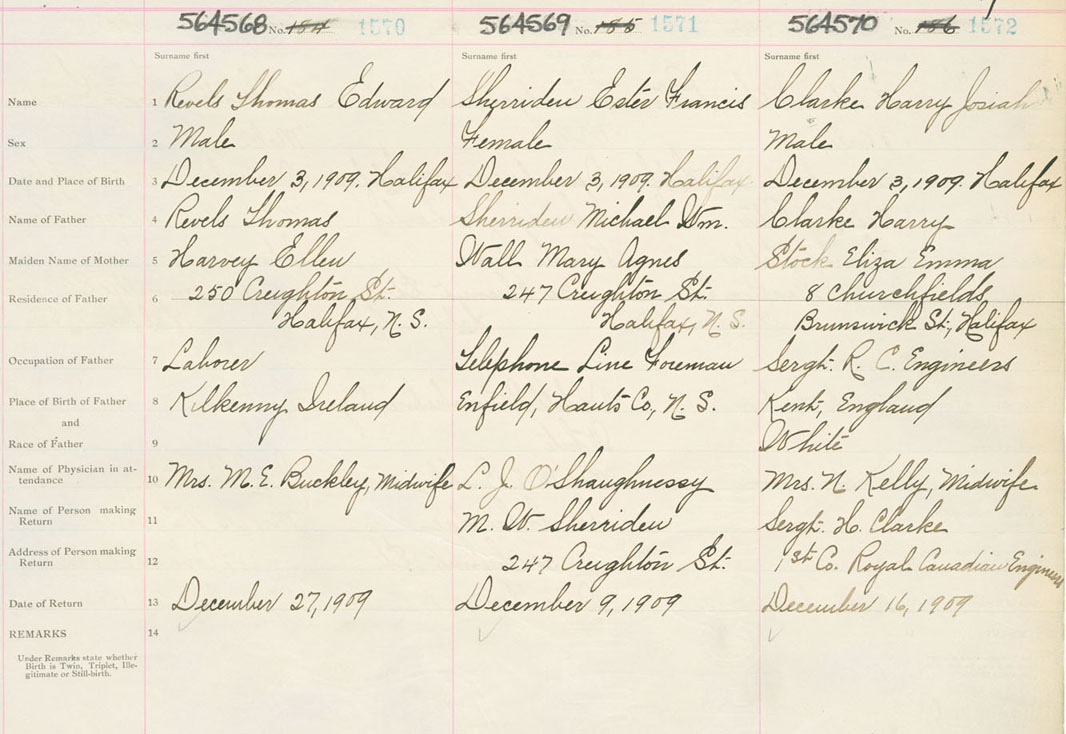 564568 No. 184 1570 564569 No. 185 1571 564570 No. 186 1572
Surname first Surname first Surname first
Name 1 Revels Thomas Edward Sherriden Ester Francis Clarke Harry Josiah
Sex 2 Male Female Male
Date and Place of Birth 3 December 3, 1909. Halifax December 3, 1909. Halifax December 3, 1909. Halifax
Name of Father 4 Revels Thomas Sherriden Michael Wm. Clarke Harry
Maiden Name of Mother 5 Harvey Ellen Wall Mary Agnes Stock Eliza Emma
Residence of Father 6 250 Creighton St. 247 Creighton St. 8 Churchfields,
Halifax, N. S. Halifax, N. S. Brunswick St., Halifax
Occupation of Father 7 Laborer Telephone Line Foreman Sergt. R. C. Engineers
Place of Birth of Father 8 Kilkenny Ireland Enfield, Hants Co., N. S. Kent, England
and
Race of Father 9 White
Name of Physician in at-
tendance 10 Mrs. M. E. Buckley, Midwife L. J. O'Shaughnessy Mrs. N. Kelly, Midwife
Name of Person making
Return 11 M. W. Sherriden Sergt. H. Clarke
Address of Person making
Return 12 247 Creighton St. 1st Co. Royal Canadian Engineers
Date of Return 13 December 27, 1909 December 9, 1909 December 16, 1909
REMARKS 14
Under Remarks state whether
Birth is Twin, Triplet, Ille-
gitimate or Still-birth.